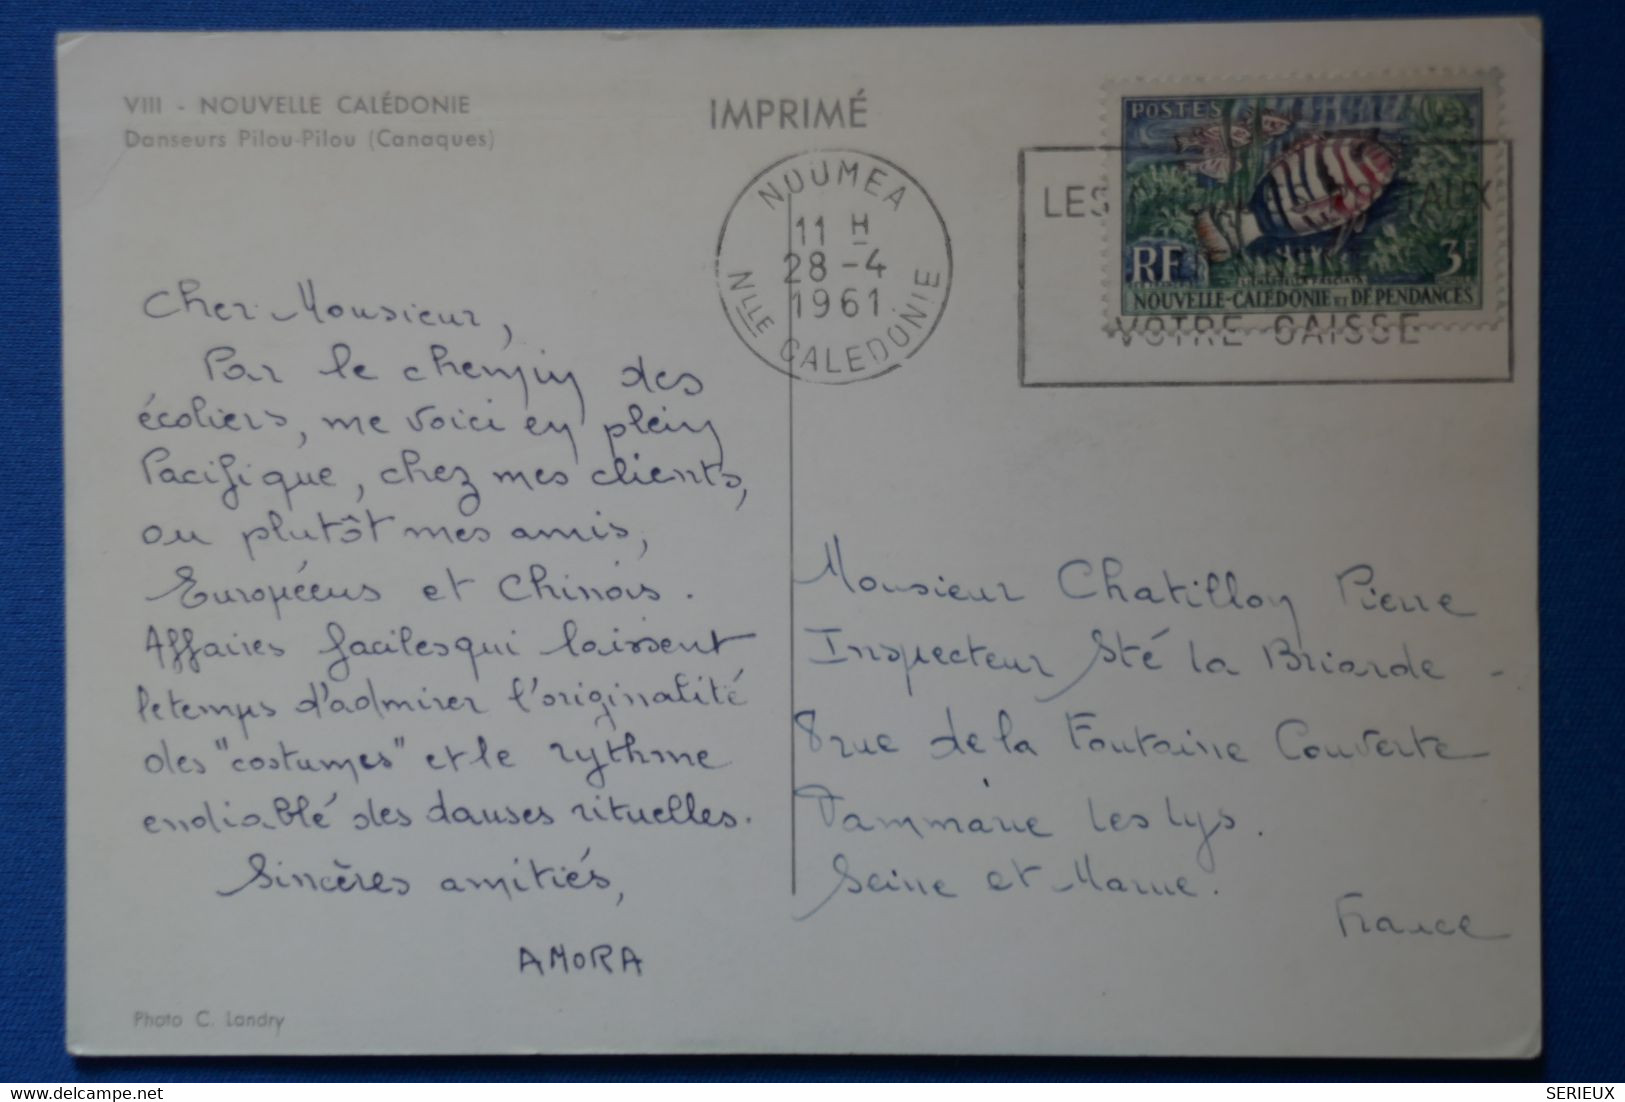 VIII - NOUVELLE CALÉDONIE
Danseurs Pilou-Pilou (Canaques)
IMPRIMÉ
NOUMEA
11 H
28-4
1961
Nlle CALEDONIE
POSTES
RF
3F
NOUVELLE-CALÉDONIE ET DÉPENDANCES
LES
POSTAUX
VOTRE CAISSE
Cher Monsieur,
Par le chemin des
écoliers, me voici en plein
Pacifique, chez mes clients,
ou plutôt mes amis,
Européens et Chinois.
Affaires faciles qui laissent
le temps d'admirer l'originalité
des "costumes" et le rythme
endiablé des danses rituelles.
Sincères amitiés,
AMORA
Photo C. Landry
Monsieur Chatillon Pierre
Inspecteur Sté la Briarde -
8 rue de la Fontaine Couverte
Dammarie les Lys.
Seine et Marne.
France
delcampe.net
SERIEUX